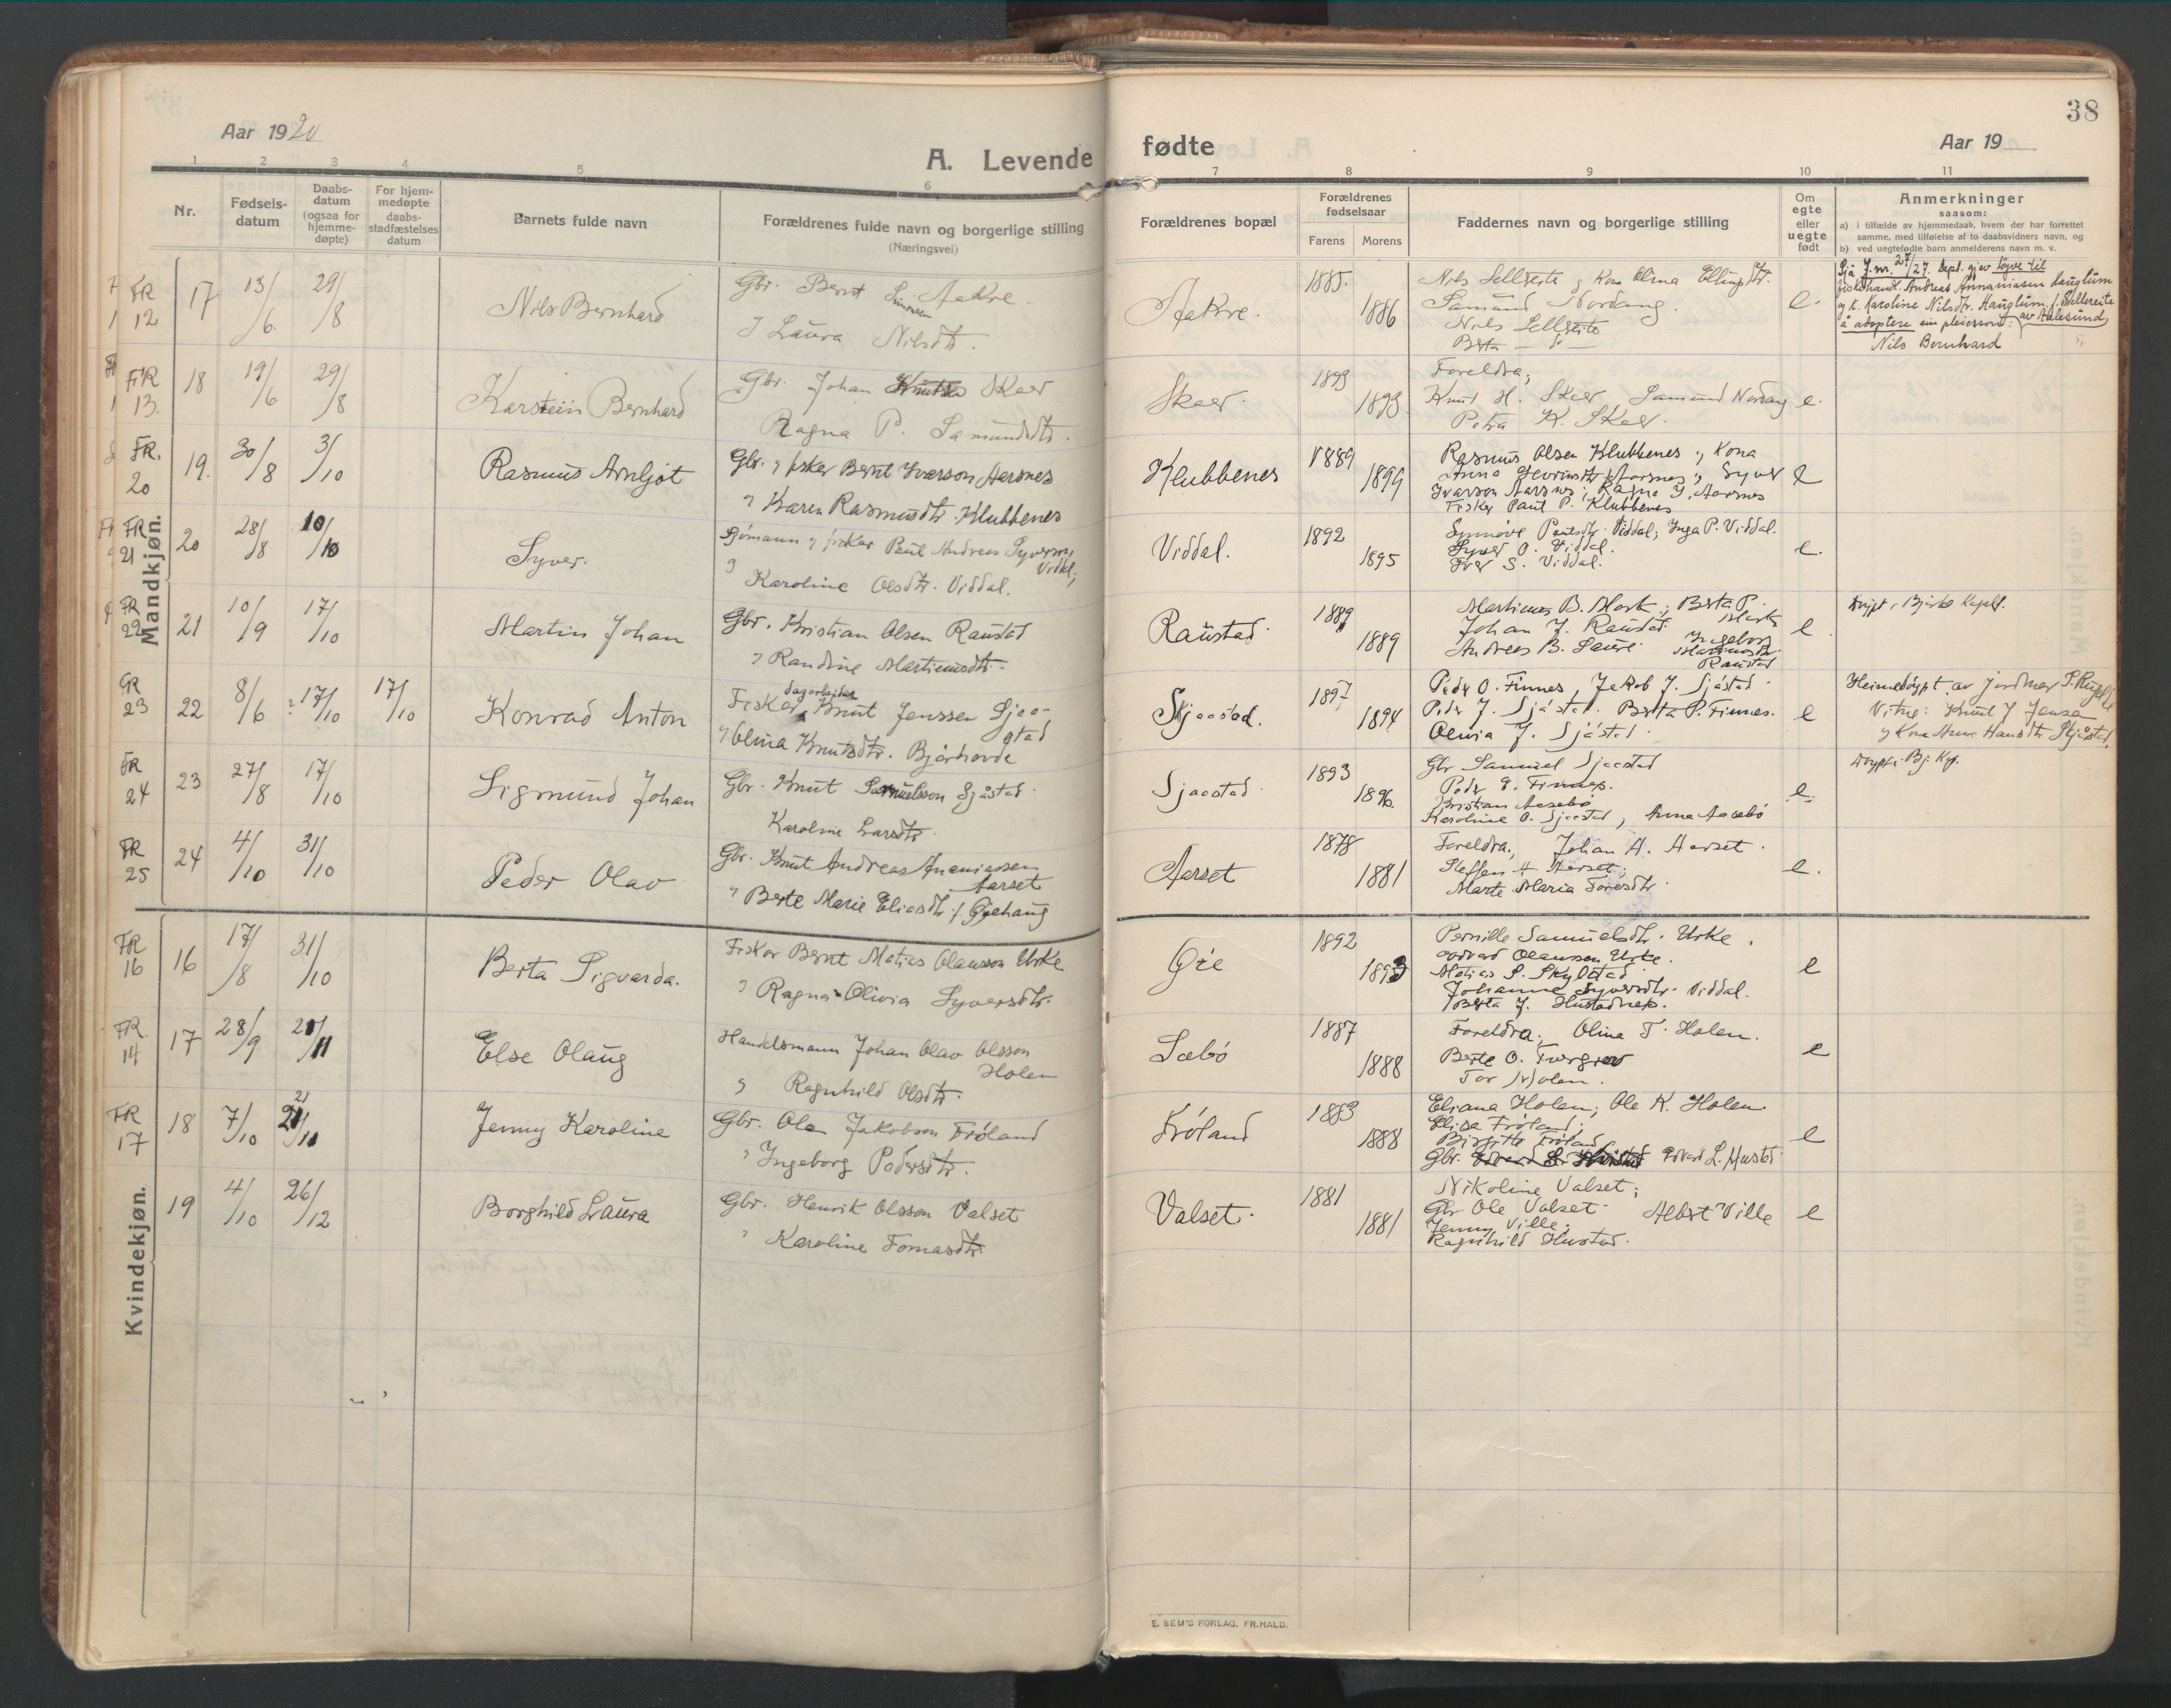 38
Aar 1920
A. Levende
fødte
Aar 19
1 2 3 4 5 6 7 8 9 10 11
Nr.
Fødsels-
datum
Daabs-
datum
(ogsaa for
hjemme-
døpte)
For hjem-
medøpte
daabs-
stadfæstelses
datum
Barnets fulde navn
Forældrenes fulde navn og borgerlige stilling
(Næringsvei)
Forældrenes bopæl
Forældrenes
fødselsaar
Farens Morens
Faddernes navn og borgerlige stilling
Om
egte
eller
uegte
født
Anmerkninger
saasom:
a) i tilfælde av hjemmedaab, hvem der har forrettet
samme, med tilføielse af to daabsvidners navn, og
b) ved uegtefødte barn anmelderens navn m. v.
Mandkjøn.
FR 12 17 13/6 29/8 Nils Bernhard
Gbr. Bernt Simonsen Aakre.
Laura Nilsdtr.
Aakre. 1885. 1886
Nils Sellereite og Kona Olina
Samund Nordang.
Nils Sellereite
Berta
e.
Sjå J.nr. 27/27. Dept. gjev løyve til
fiskehand. Andreas Annaniasen Hauglum
og k. Karoline Nilsdtr. Hauglum f. Sellereite
av Aalesund,
å adoptere ein pleieson:
Nils Bernhard
FR 13. 18 19/6 29/8 Karstein Bernhard
Gbr. Johan Knutsen Skaer
Ragna P. Samundsdtr.
Skaer. 1893 1893.
Foreldra;
Knut H. Skaer Samund Nordang
Petra K. Skaer.
e.
FR. 20 19. 30/8 3/10 Rasmus Arnljot
Gbr. og fisker Bernt Ivarson Aarsnes
og Karen Rasmusdtr. Klubbenes
Klubbenes 1889 1899
Rasmus Olsen Klubbenes og Kona
Anna Aarsnes; Syver
Ivarson Aarsnes; Ragna I. Aarsnes
Fisker Paul P. Klubbenes
e
FR 21 20 28/8 10/10 Syver.
Sjømann og fisker Paul Andreas Syverson,
Viddal;
og Karoline Olsdtr. Viddal.
Viddal. 1892 1895
Synnøve Paulsdtr. Viddal; Inga P. Viddal.
Syver O. Viddal.
Iver S. Viddal.
e.
FR 22 21 10/9 17/10 Martin Johan
Gbr. Kristian Olsen Raustad
og Randine Martinusdtr.
Raustad 1889 1889
Martinus B. Mork; Berta P. Mork
Johan J. Raustad.
Andreas B. Saure. Ingeborg
Martinusdtr.
Raustad
e
Døypt i Bjørke Kapell.
FR 23 22 8/6 17/10 17/10 Konrad Anton
Fisker, dagarbeider Knut Jenssen Sjaa-
stad
og Olina Knutsdtr. Bjørhovde
Skjaastad. 1897 1894
Peder O. Finnes, Jakob J. Sjåstad
Peder J. Sjåstad. Berta P. Finnes.
Olivia J. Sjåstad.
e
Heimedøypt av jordmor
Vitne: Knut J. Jensen
og Kona Anne Hansdtr. Skjåstad.
FR 24 23 27/8 17/10 Sigmund Johan
Gbr. Knut Samuelson Sjåstad.
Karoline Larsdtr.
Sjaastad 1893 1896.
Gbr Samuel Sjaastad
Peder E. Finnes.
Kristian Aasebø
Karoline O. Sjaastad, Anna Aasebø
e.
Døypt i Bj. Kp.
FR 25 24 4/10 31/10 Peder Olav
Gbr. Knut Andreas Ananiassen
Aarset
og Berte Marie Eliasdtr. f. Øyehaug
Aarset 1878 1881
Foreldra., Johan A. Aarset.
Steffen A Aarset;
Marte Maria Toresdtr.
e.
Kvindekjøn.
FR 16 16 17/8 31/10 Berta Sigvarda.
Fisker Bernt Matias Olausson Urke
og Ragna Olivia Syversdtr.
Øie 1892 1893
Pernille Samuelsdtr. Urke.
Edvard Olaussen Urke.
Matias S. Skylstad
Johanne Syversdtr. Viddal.
Berta J. Hustadnes.
e
FR. 14 17 28/9 21/11 Else Olaug
Handelsmann Johan Olav Olsson
Holen
og Ragnhild Olsdtr.
Sæbø 1887 1888
Foreldra; Oline T. Holen.
Berte O.
Tor Molen.
e
FR 17 18 7/10 21/11 Jenny Karoline
Gbr. Ole Jakobson Frøland
og Ingeborg Pedersdtr.
Frøland 1883 1888
Eliana Holen; Ole K. Holen
Elisa Frøland;
Birgitte Frøland
Gbr. Edvard L. Mustad
e
19 4/10 26/12 Borghild Laura
Gbr. Henrik Olsson Valset
Karoline Tomasdtr.
Valset. 1881 1881
Nikoline Valset;
Gbr Ole Valset. Albert Ville
Jenny Ville;
Ragnhild Hustad.
e
E. SEM'S FORLAG, FR.HALD.